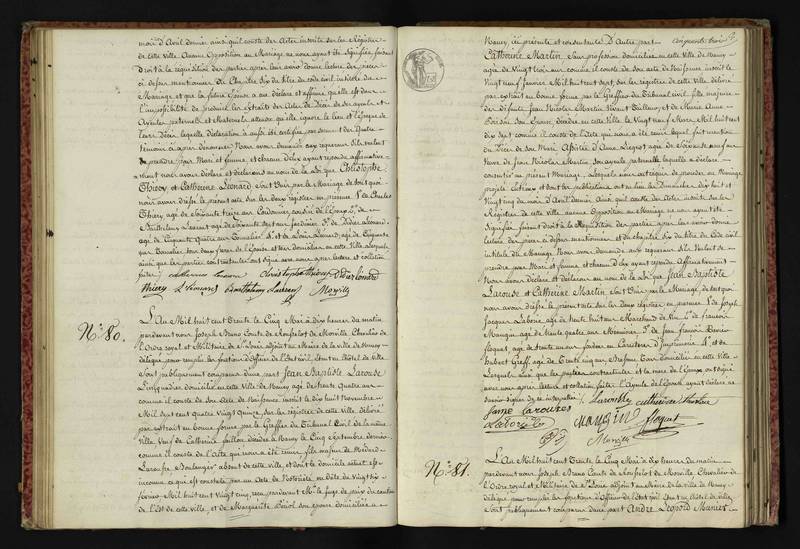 mois d'Avril dernier ainsi qu'il conste des Actes inscrits sur les Registres
de cette Ville Aucune Opposition au Mariage ne nous ayant été signifiée, faisant
droit à la réquisition des parties après leur avoir donné lecture des pièces
ci dessus mentionnées du Chapitre Six du titre du code civil intitulé du
Mariage et que la future Épouse a eu déclaré et affirmé qu'elle est dans
l'impossibilité de produire les Extraits des Actes de Décès de ses ayeuls et
Ayeules paternels et Maternels attendu qu'elle ignore le lieu et l'Époque de
leurs Décès laquelle déclaration a aussi été certifiée par serment des quatre
témoins ci après dénommés Nous avons demandé aux requérans S'ils veulent
prendre pour Mari et femme et chacun d'eux ayant répondu affirmative-
-ment nous avons déclaré et déclarons au nom de la loi que Christophe
Thiéry et Catherine Léonard sont Unis par le Mariage de tout quoi
nous avons dressé le présent acte sur les deux registres en présence 1.º de Charles
Thiéry agé de Soixante treize ans Cordonnier, cousin de l'Epoux 2.º de
Barthélemy Laurent agé de Soixante Sept ans Jardinier 3.º de Didier Léonard
agé de Cinquante quatre ans Tonnelier 4.º et de Louis Léonard, agé de Cinquante
ans Tonnelier tous deux frères de l'Épouse et tous domiciliés en cette Ville lesquels
ainsi que les parties contractantes ont signé avec nous après lecture et collation
faites.
Christophe Thiéry D.dier Léonard
Thiéry L. Léonard Barthélemy Laurent Morville
N.º 80.
L'An Mil huit cent Trente le Cinq Mai à dix heures du matin
pardevant nous Joseph Bruno Comte de Morville Chevalier de
l'Ordre royal et Militaire de S.t Louis adjoint au Maire de la ville de Nancy
délégué pour remplir les fonctions d'officier de l'état civil, Sont en l'hôtel de Ville
Sont publiquement comparus d'une part Jean Baptiste Larousse
domicilié en cette Ville de Nancy agé de trente quatre ans
comme il conste de son Acte de Naissance inscrit le dix huit Novembre
Mil Sept cent quatre Vingt Quinze, sur les registres de cette ville délivré
par extrait en bonne forme par le Greffier du Tribunal Civil de la même
ville, Veuf de Catherine décédée à Nancy le Cinq Septembre dernier
comme il conste de l'acte qui nous a été remis, fils majeur de
Larousse Boulanger absent de cette ville, et dont le domicile actuel est
inconnu ce qui est constaté par un Acte de Notoriété en date du Vingt six
février Mil huit cent Vingt cinq, reçu pardevant M.r le Juge de paix du canton
de l'Est de cette ville, et de Marguerite son épouse domiciliée à
Cinquante trois
Nancy ici présente et consentante D'Autre part
Catherine Martin Sans profession domiciliée en cette Ville de Nancy
agée de Vingt trois ans comme il conste de son acte de Naissance inscrit le
Vingt neuf Janvier Mil huit cent Sept sur les registres de cette Ville délivré
par extrait en bonne forme par le Greffier du Tribunal civil, fille majeure
de défunts Jean Nicolas Martin vivant et de Marie Anne
Poirson son Épouse décédée en cette Ville le Vingt neuf Mars Mil huit cent
dix sept comme il conste de l'Acte qui nous a été remis lequel fait mention
du Décès de son Mari Assistée d'Anne agée de Soixante
Veuve de Jean Nicolas Martin son ayeule paternelle laquelle a déclaré
consentir au présent Mariage, Lesquels nous ont requis de procéder au Mariage
projeté Entr'eux et dont les publications ont eu lieu les Dimanches dix huit et
Vingt cinq du mois d'Avril dernier Ainsi qu'il conste des actes inscrits sur les
Registres de cette Ville aucune Opposition au Mariage ne nous ayant été
Signifiée, faisant droit à la Réquisition des parties après leur avoir donné
lecture des pièces ci dessus mentionnées et du chapitre six du titre du Code civil
intitulé du Mariage. Nous avons demandé aux requérans S'ils Veulent se
prendre pour Mari et femme et chacun d'eux ayant répondu Affirmativement
Nous avons déclaré et déclarons au nom de la loi que Jean Baptiste
Larousse et Catherine Martin, sont Unis par le Mariage de tout quoi
nous avons dressé le présent acte sur les deux registres en présence 1.º de Joseph
Jacques Laborie agé de trente huit ans Marchand de Vin 2.º de francois
Mangin agé de trente quatre ans Menuisier 3.º de Jean francois
floquet agé de trente un ans fondeur en Caractères d'Imprimerie 4.º et de
Hubert Greff agé de Trente cinq ans Tous domiciliés en cette Ville
Lesquels ainsi que les parties contractantes et la mère de l'époux ont signé
avec nous après lecture et collation faites. L'Ayeule de l'Épouse ayant déclaré ne
savoir signer de ce interpellée. Larousse Catherine Martin
Larousse
Laborie MANGIN floquet
Morville
N.º 81.
L'An Mil huit cent Trente le Cinq Mai à dix heures du matin
pardevant nous Joseph Bruno Comte de Morville, Chevalier de
l'Ordre royal et Militaire de S.t Louis adjoint au Maire de la ville de Nancy
délégué pour remplir les fonctions d'Officier de l'état civil Sont en l'hôtel de ville
Sont publiquement comparus d'une part André Léopold Munier